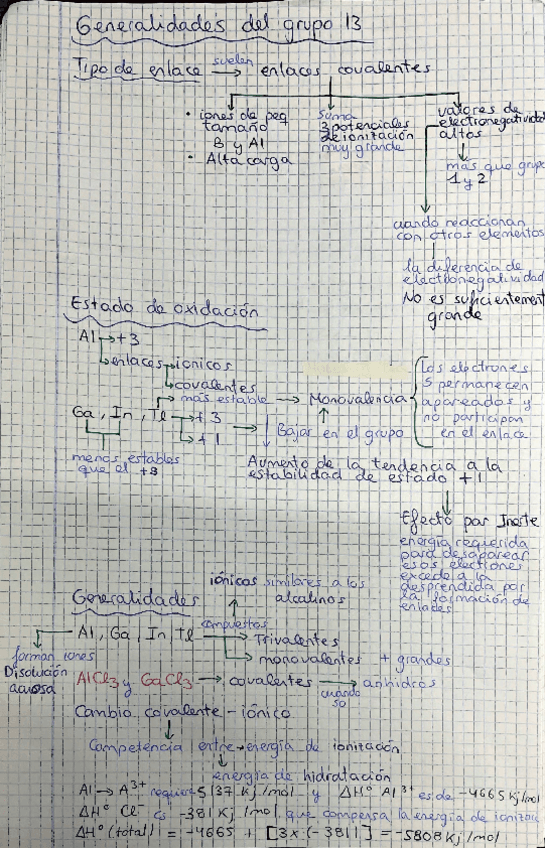 Generalidades del grupo 13
Tipo de enlace suelen → enlaces covalentes
• iones de peq
tamaño
B y Al
• Alta carga
suma
3 potenciales
de ionización
muy grande
valores de
electronegatividad
altos
más que grupo
1 y 2
cuando reaccionan
con otros elementos
la diferencia de
electronegatividad
No es suficientement
grande
Estado de oxidación
Al → +3
enlaces → iónicos
covalentes
más estable → Monovalencia
Ga, In, Tl → +3
+1
menos estables
que el +3
Los electrones
S permanecen
apareados y
no participan
en el enlace
Bajar en el grupo
Aumento de la tendencia a la
estabilidad de estado +1
Efecto par Inerte
energía requerida
para desaparear
esos electrones
excede a la
desprendida por
la formación de
enlaces
Generalidades
iónicos similares a los
alcalinos
Al, Ga, In, Tl compuestos → Trivalentes
monovalentes + grandes
forman iones
Disolución
acuosa
AlCl3 y GaCl3 → covalentes cuando so → anhidros
Cambio covalente - iónico
Competencia entre → energía de ionización
energía de hidratación
Al → A3+ requiere 5137 Kj/mol y ΔH° Al3+ es de -4665 Kj/mol
ΔH° Cl- es -381 Kj/mol que compensa la energía de ionizac
ΔH° (total) = -4665 + [3x(-381)] = -5808 Kj/mol